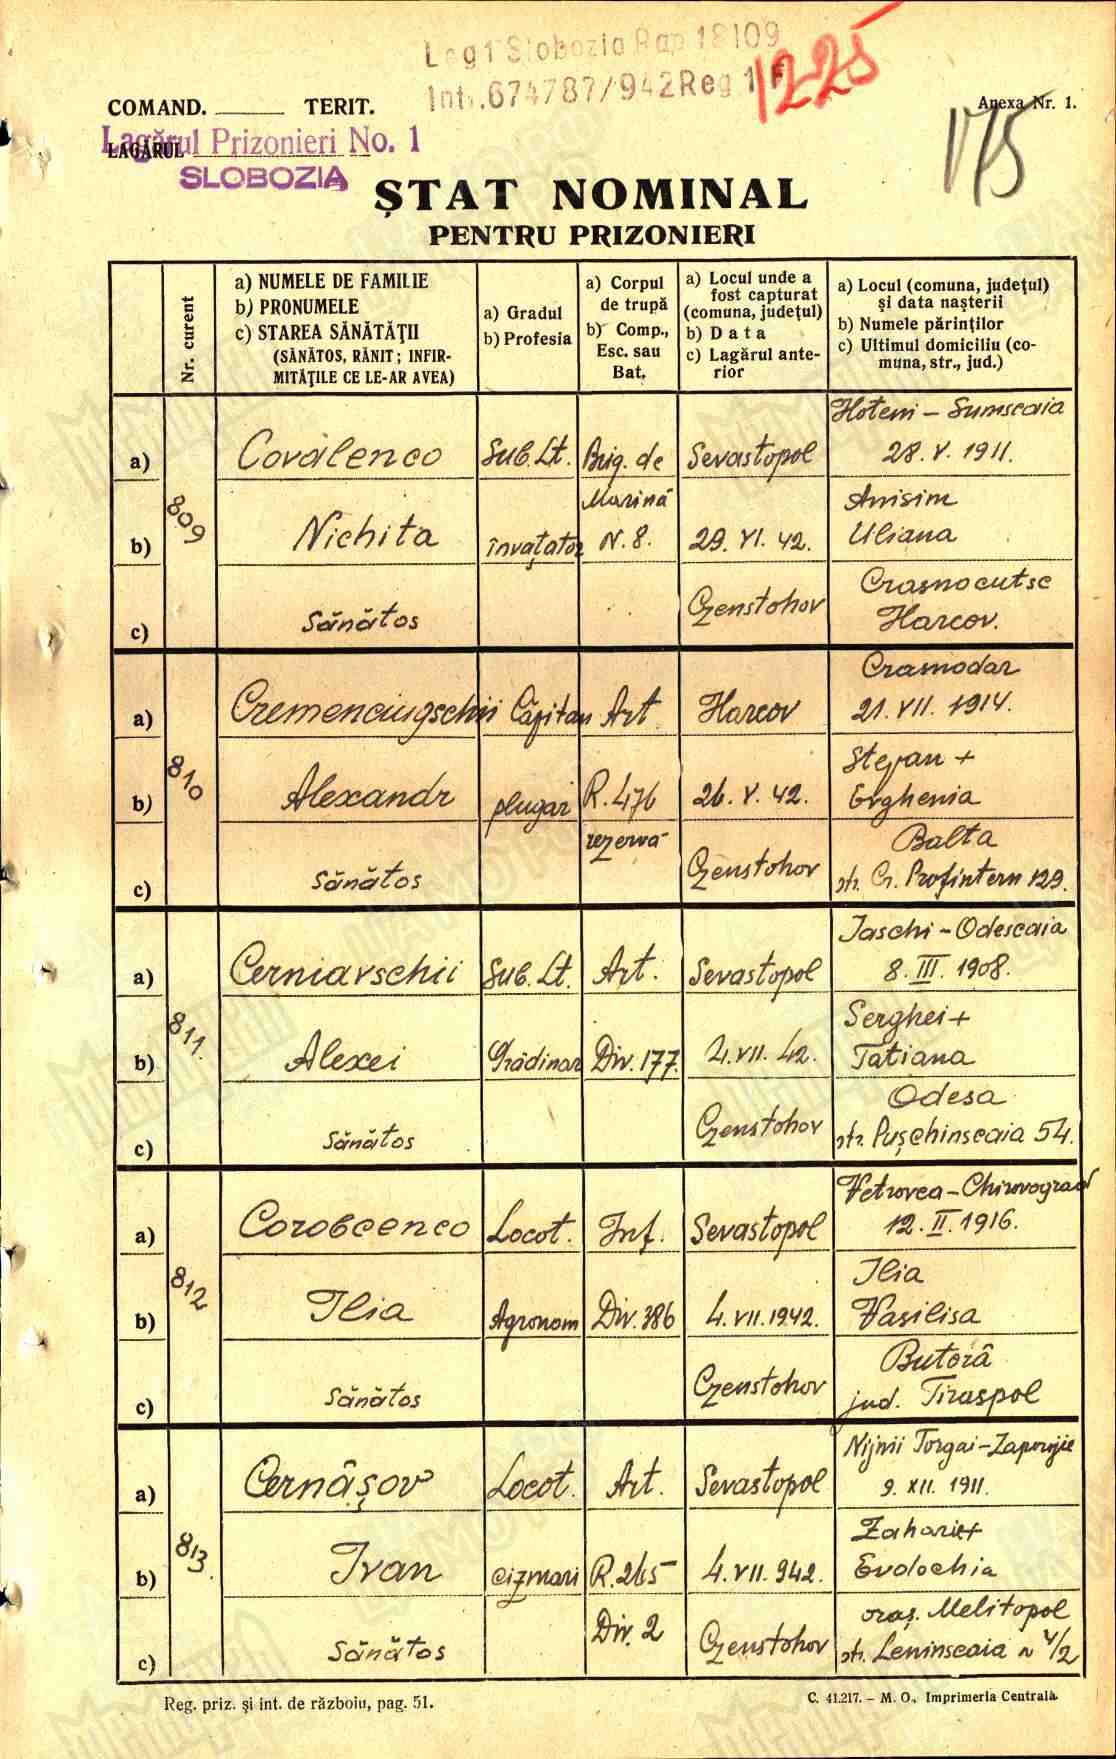 Lag 1 Slobozia Rap 18109
Intr. 674787/942 Reg 1 F
1225
COMAND. TERIT.
Anexa Nr. 1.
175
Lagărul Prizonieri No. 1
LAGĂRUL
SLOBOZIA
ȘTAT NOMINAL
PENTRU PRIZONIERI
Nr. curent
a) NUMELE DE FAMILIE
b) PRONUMELE
c) STAREA SĂNĂTĂȚII
(SĂNĂTOS, RĂNIT; INFIR-
MITĂȚILE CE LE-AR AVEA)
a) Gradul
b) Profesia
a) Corpul
de trupă
b) Comp.,
Esc. sau
Bat.
a) Locul unde a
fost capturat
(comuna, județul)
b) Data
c) Lagărul ante-
rior
a) Locul (comuna, județul)
și data nașterii
b) Numele părinților
c) Ultimul domiciliu (co-
muna, str., jud.)
809
Hoteni - Sumscaia
a) Covalenco Sub. Lt. Brig. de Sevastopol 28. V. 1911.
Marină Anisim
b) Nichita învațator N. 8. 29. VI. 42. Uliana
Crasnocutsc
c) Sănătos Czenstohov Harcov.
810
Crasnodar
a) Cremenciugschii Căpitan Art. Harcov 21. VII. 1914.
Stepan +
b) Alexandr plugar R. 476 26. V. 42. Evghenia
rezervă Balta
c) Sănătos Czenstohov str. Cr. Profintern 129.
811.
Iaschi - Odescaia
a) Cerniavschii Sub. Lt. Art. Sevastopol 8. III. 1908.
Serghei +
b) Alexei Grădinar Div. 177. 4. VII. 42. Tatiana
Odesa
c) Sănătos Czenstohov str. Pușchinscaia 54.
812
Vetrovca - Chirovograd
a) Corobcenco Locot. Inf. Sevastopol 12. II. 1916.
Ilia
b) Ilia Agronom Div. 386 4. VII. 1942. Vasilisa
Butoră
c) Sănătos Czenstohov jud. Tiraspol
813.
Nijnii Torgai - Zaporojie
a) Cernâșov Locot. Art. Sevastopol 9. XII. 1911.
Zaharie +
b) Ivan cizmari R. 265 4. VII. 942. Evdochia
Div. 2 oraș. Melitopol
c) Sănătos Czenstohov str. Leninscaia n 4/2
Reg. priz. și int. de războiu, pag. 51.
C. 41.217. – M. O., Imprimeria Centrală.